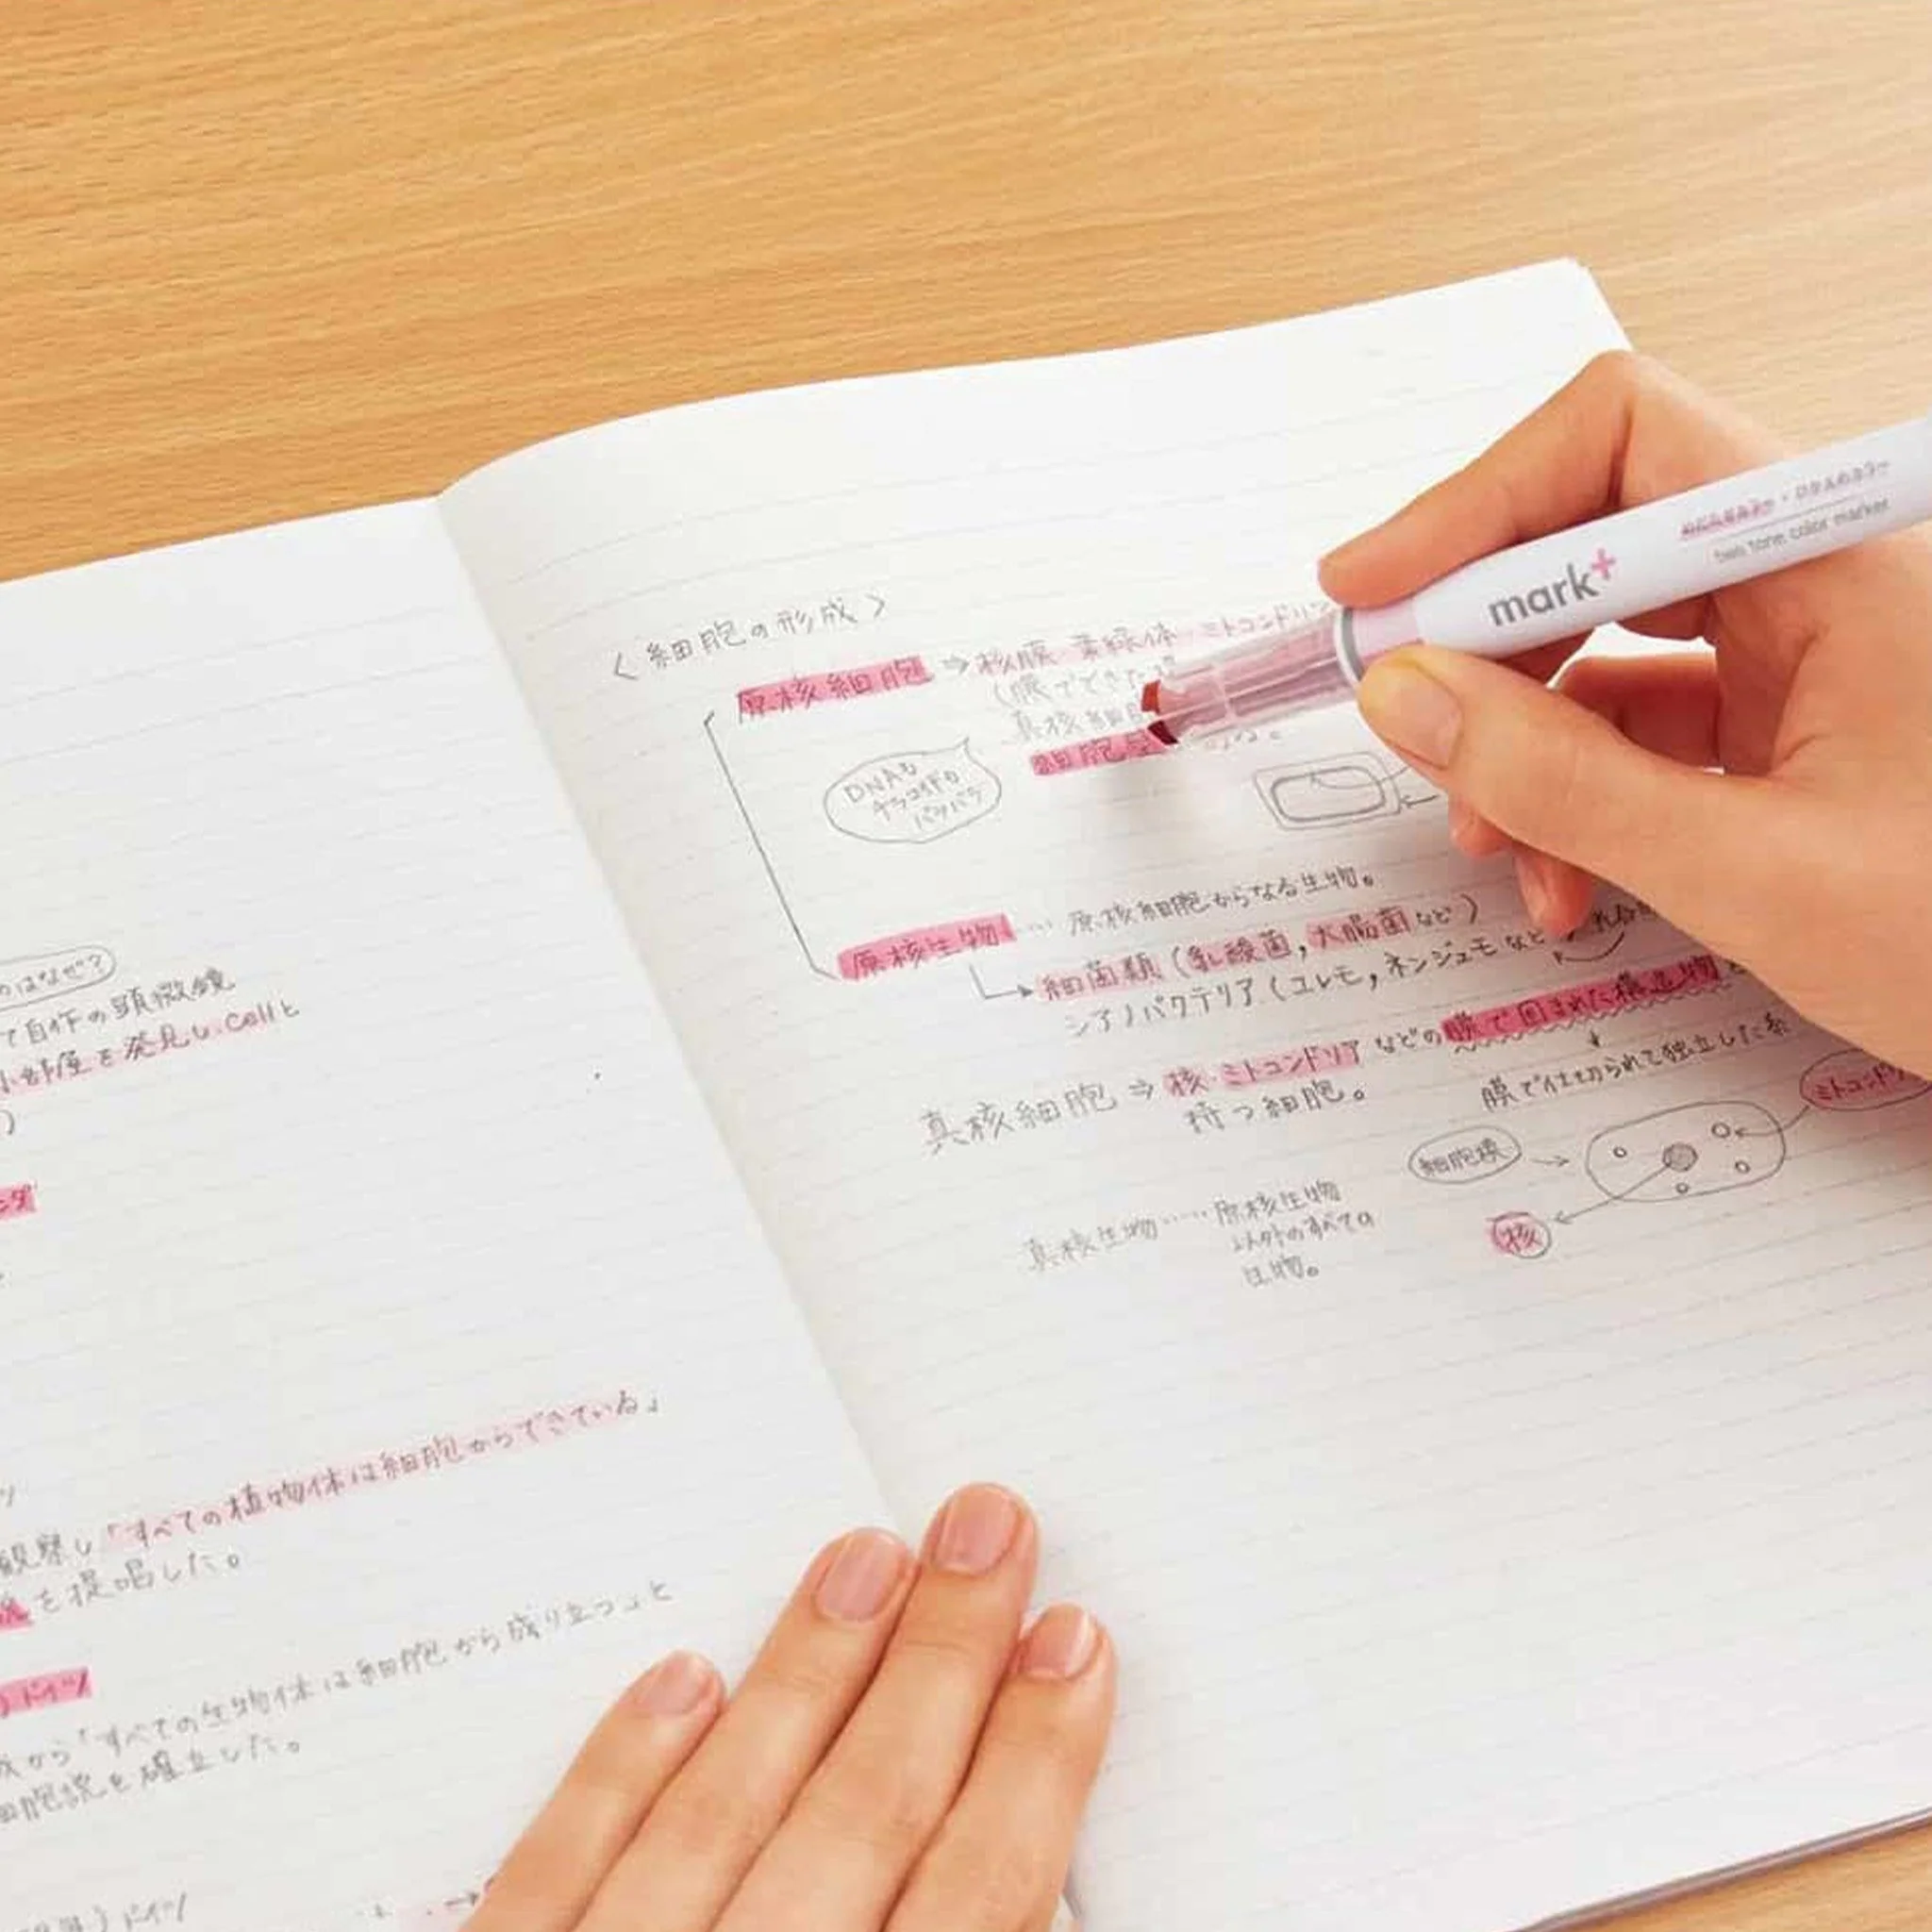 はなぜ?
て自作の顕微鏡
小部屋を発見し、cellと
)
観察し「すべての植物体は細胞からできている」
を提唱した。
)ドイツ
から「すべての生物体は細胞から成り立つ」と
細胞説を確立した。
)ドイツ
〈細胞の形成〉
原核細胞 ⇒ 核膜・葉緑体・ミトコンドリ
(膜でできた
真核細胞
細胞
DNAも
チラコイドも
バラバラ
原核生物 … 原核細胞からなる生物。
細菌類(乳酸菌,大腸菌など)
シアノバクテリア(ユレモ,ネンジュモなど
真核細胞 ⇒ 核・ミトコンドリア などの膜で囲まれた構造物を
持つ細胞。
膜で仕切られて独立した系
ミトコンドリ
細胞膜
核
真核生物……原核生物
以外のすべての
生物。
mark+
two tone color marker